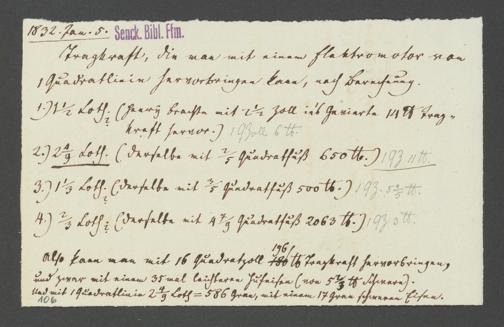 1832. Jan. 5. Senck. Bibl. Ffm.
Tragkraft, die man mit einem Elektromotor von
1 Quadratlinie hervorbringen kann, nach Berechnung.
1.) 1½ Loth. (Henry brachte mit Zoll ins Gevierte 14 ℔ Trag-
kraft hervor.) 19 Zoll 6 ℔.
2.) 2 4/9 Loth. (derselbe mit 2/5 Quadratfuß 650 ℔.) 19 11 ℔.
3.) 1 Loth; (derselbe mit 2/5 Quadratfuß 500 ℔.) 19
4.) 2/3 Loth; (derselbe mit Quadratfuß 2063 ℔.) 19 3 ℔.
Also kann man mit 16 Quadratzoll 196 ℔ Tragkraft hervorbringen,
und zwar mit einem 35 mal leichteren Hufeisen (von ℔ Schwere).
Und mit 1 Quadratlinie 2 4/9 Loth = 586 Gran, mit einem 17 Gran schweren Eisen.
106